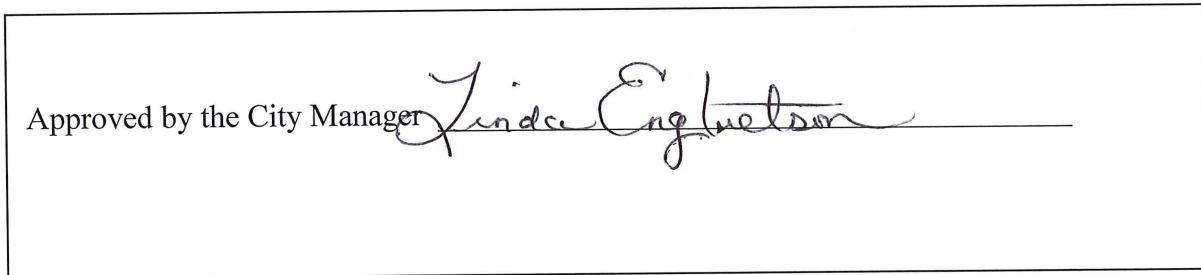 Approved by the City Manager Linda Engbretson